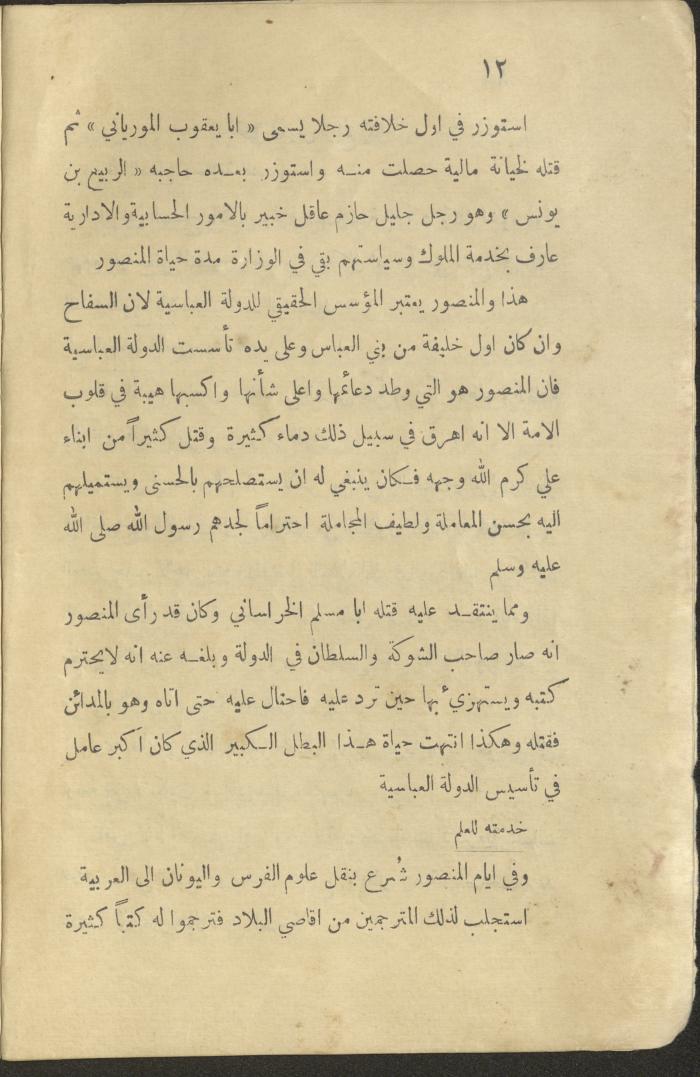 ١٢
استوزر في اول خلافته رجلا يسمى « ابا يعقوب المورياني » ثم
قتله لخيانة مالية حصلت منه واستوزر بعده حاجبه « الربيع بن
يونس » وهو رجل جليل حازم عاقل خبير بالامور الحسابية والادارية
عارف بخدمة الملوك وسياستهم بقي في الوزارة مدة حياة المنصور
هذا والمنصور يعتبر المؤسس الحقيقي للدولة العباسية لان السفاح
وان كان اول خليفة من بني العباس وعلى يده تأسست الدولة العباسية
فان المنصور هو التي وطد دعائمها واعلى شأنها واكسبها هيبة في قلوب
الامة الا انه اهرق في سبيل ذلك دماء كثيرة وقتل كثيراً من ابناء
علي كرم الله وجهه فكان ينبغي له ان يستصلحهم بالحسنى ويستميلهم
اليه بحسن المعاملة ولطيف المجاملة احتراماً لجدهم رسول الله صلى الله
عليه وسلم
ومما ينتقد عليه قتله ابا مسلم الخراساني وكان قد رأى المنصور
انه صار صاحب الشوكة والسلطان في الدولة وبلغه عنه انه لايحترم
كتبه ويستهزئ بها حين ترد عليه فاحتال عليه حتى اتاه وهو بالمدائن
فقتله وهكذا انتهت حياة هذا البطل الكبير الذي كان اكبر عامل
في تأسيس الدولة العباسية
خدمته للعلم
وفي ايام المنصور شُرع بنقل علوم الفرس واليونان الى العربية
استجلب لذلك المترجمين من اقاصي البلاد فترجموا له كتباً كثيرة